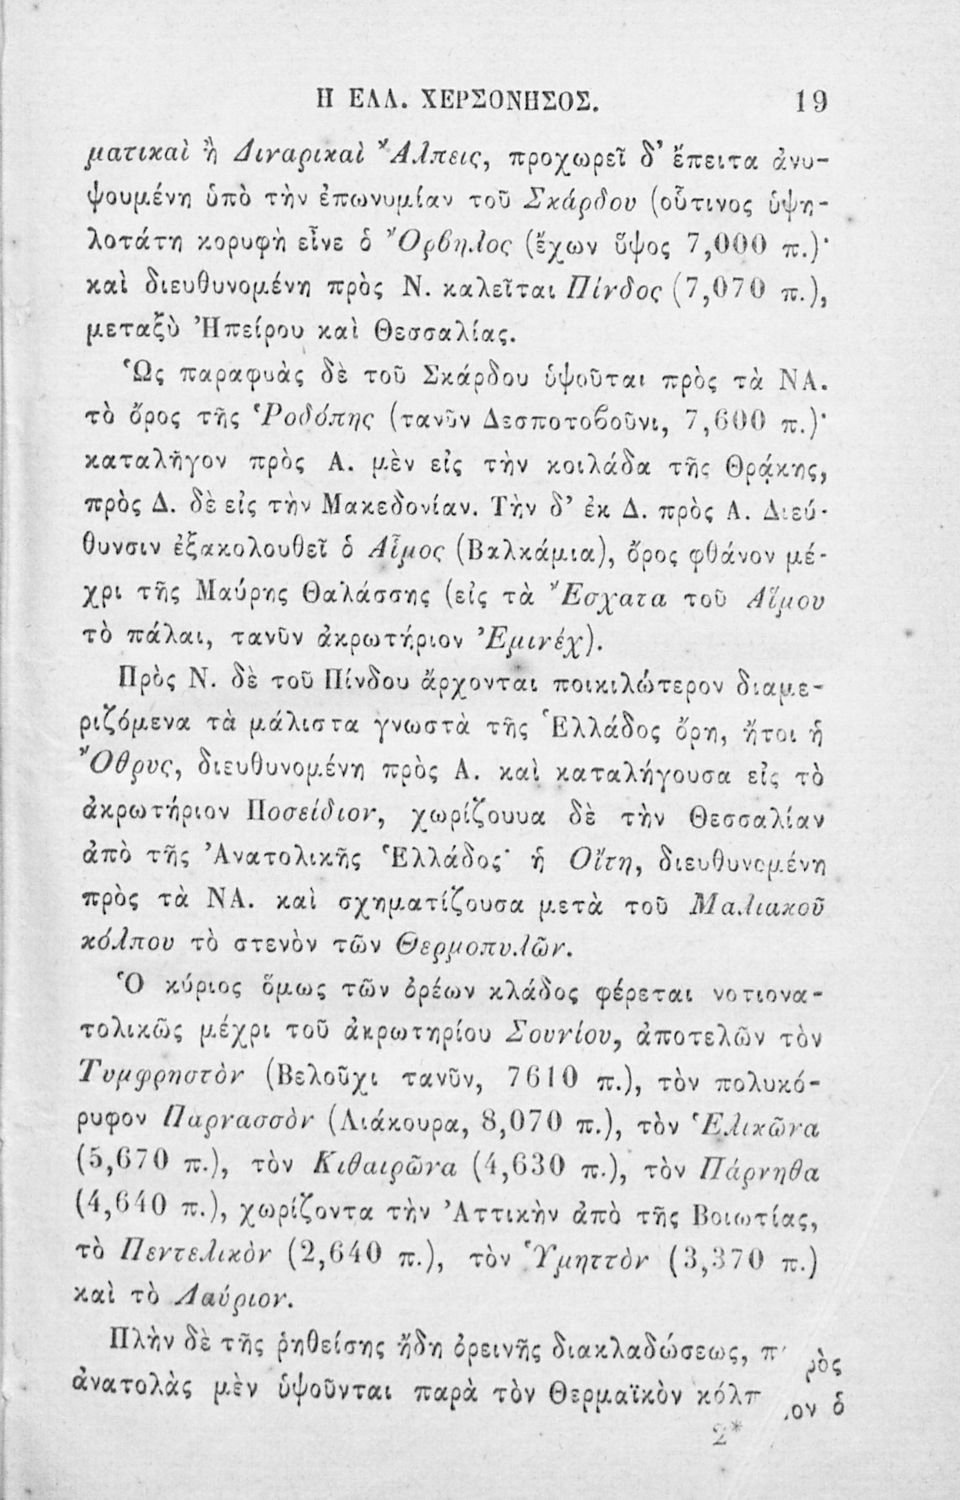 Η ΕΛΛ. ΧΕΡΣΟΝΗΣΟΣ. 19
ματικαὶ ἢ Διναρικαὶ Ἄλπεις, προχωρεῖ δ' ἔπειτα ἀνυ-
ψουμένη ὑπὸ τὴν ἐπωνυμίαν τοῦ Σκάρδου (οὗτινος ὑψη-
λοτάτη κορυφὴ εἶνε ὁ Ὄρβηλος (ἔχων ὕψος 7,000 π.)·
καὶ διευθυνομένη πρὸς Ν. καλεῖται Πίνδος (7,070 π.),
μεταξὺ Ἠπείρου καὶ Θεσσαλίας.
Ὡς παραφυὰς δὲ τοῦ Σκάρδου ὑψοῦται πρὸς τὰ ΝΑ.
τὸ ὄρος τῆς Ῥοδόπης (τανῦν Δεσποτοβοῦνι, 7,600 π.)·
καταλῆγον πρὸς Α. μὲν εἰς τὴν κοιλάδα τῆς Θρᾴκης,
πρὸς Δ. δὲ εἰς τὴν Μακεδονίαν. Τὴν δ' ἐκ Δ. πρὸς Α. Διεύ-
θυνσιν ἐξακολουθεῖ ὁ Αἷμος (Βαλκάμια), ὄρος φθάνον μέ-
χρι τῆς Μαύρης Θαλάσσης (εἰς τὰ Ἔσχατα τοῦ Αἵμου
τὸ πάλαι, τανῦν ἀκρωτήριον Ἐμινέχ).
Πρὸς Ν. δὲ τοῦ Πίνδου ἄρχονται ποικιλώτερον διαμε-
ριζόμενα τὰ μάλιστα γνωστὰ τῆς Ἑλλάδος ὄρη, ἤτοι ἡ
Ὄθρυς, διευθυνομένη πρὸς Α. καὶ καταλήγουσα εἰς τὸ
ἀκρωτήριον Ποσείδιον, χωρίζουυα δὲ τὴν Θεσσαλίαν
ἀπὸ τῆς Ἀνατολικῆς Ἑλλάδος· ἡ Οἴτη, διευθυνομένη
πρὸς τὰ ΝΑ. καὶ σχηματίζουσα μετὰ τοῦ Μαλιακοῦ
κόλπου τὸ στενὸν τῶν Θερμοπυλῶν.
Ὁ κύριος ὅμως τῶν ὀρέων κλάδος φέρεται νοτιονα-
τολικῶς μέχρι τοῦ ἀκρωτηρίου Σουνίου, ἀποτελῶν τὸν
Τυμφρηστὸν (Βελοῦχι τανῦν, 7610 π.), τὸν πολυκό-
ρυφον Παρνασσὸν (Λιάκουρα, 8,070 π.), τὸν Ἑλικῶνα
(5,670 π.), τὸν Κιθαιρῶνα (4,630 π.), τὸν Πάρνηθα
(4,640 π.), χωρίζοντα τὴν Ἀττικὴν ἀπὸ τῆς Βοιωτίας,
τὸ Πεντελικὸν (2,640 π.), τὸν Ὑμηττὸν (3,370 π.)
καὶ τὸ Λαύριον.
Πλὴν δὲ τῆς ῥηθείσης ἤδη ὀρεινῆς διακλαδώσεως, πρὸς
ἀνατολὰς μὲν ὑψοῦνται παρὰ τὸν Θερμαϊκὸν κόλπον ὁ
2*